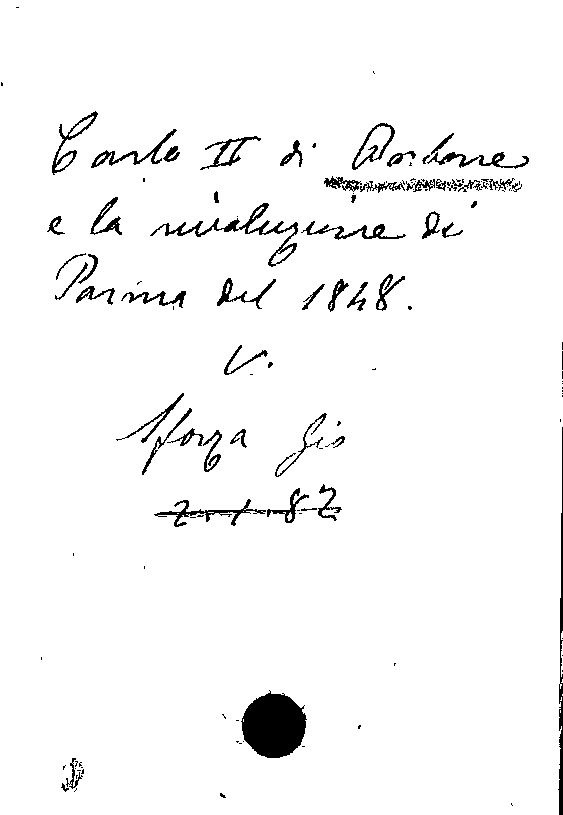 Carlo II di Borbone
e la rivoluzione di
Parma del 1848.
V.
Sforza Gio
2.1.82